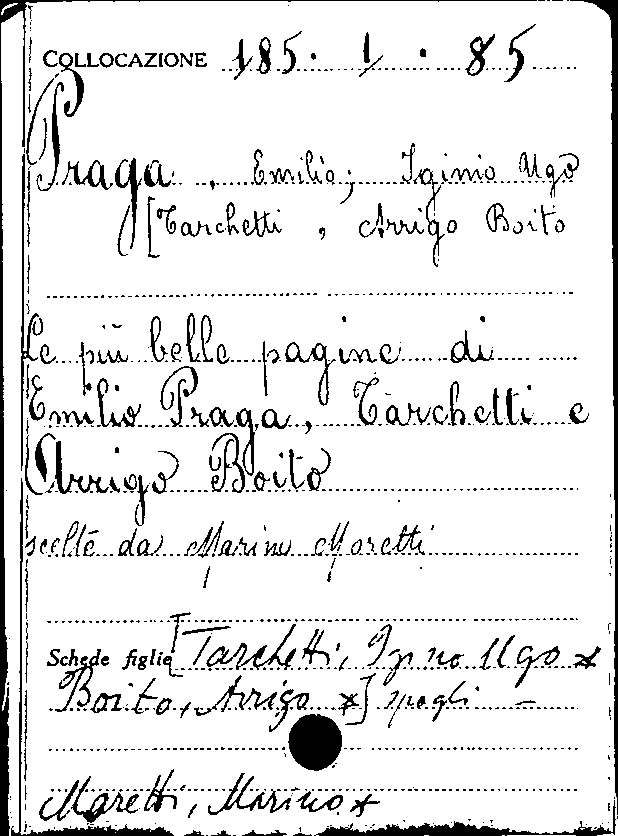 COLLOCAZIONE 185. 1. 85
Praga, Emilio; Iginio Ugo
[Tarchetti, Arrigo Boito
Le più belle pagine di
Emilio Praga, Tarchetti e
Arrigo Boito
scelte da Marino Moretti
Schede figlie [Tarchetti, Igino Ugo *
Boito, Arrigo *] spogli –
Moretti, Marino *